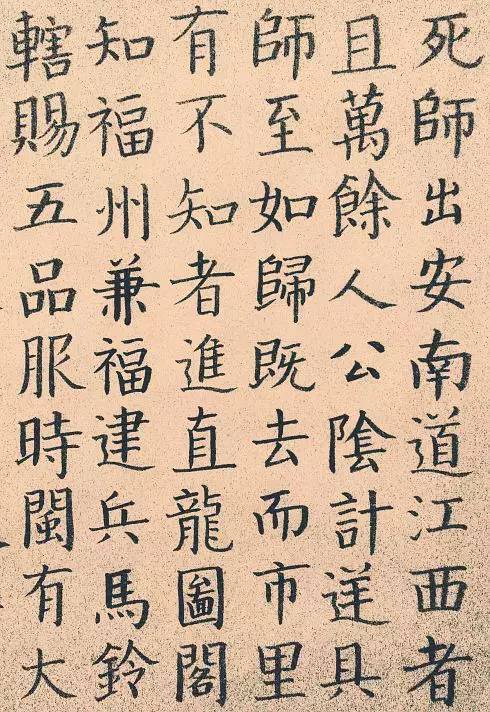 死師出安南道江西者
且萬餘人公陰計逆具
師至如歸既去而市里
有不知者進直龍圖閣
知福州兼福建兵馬鈴
轄賜五品服時閩有大